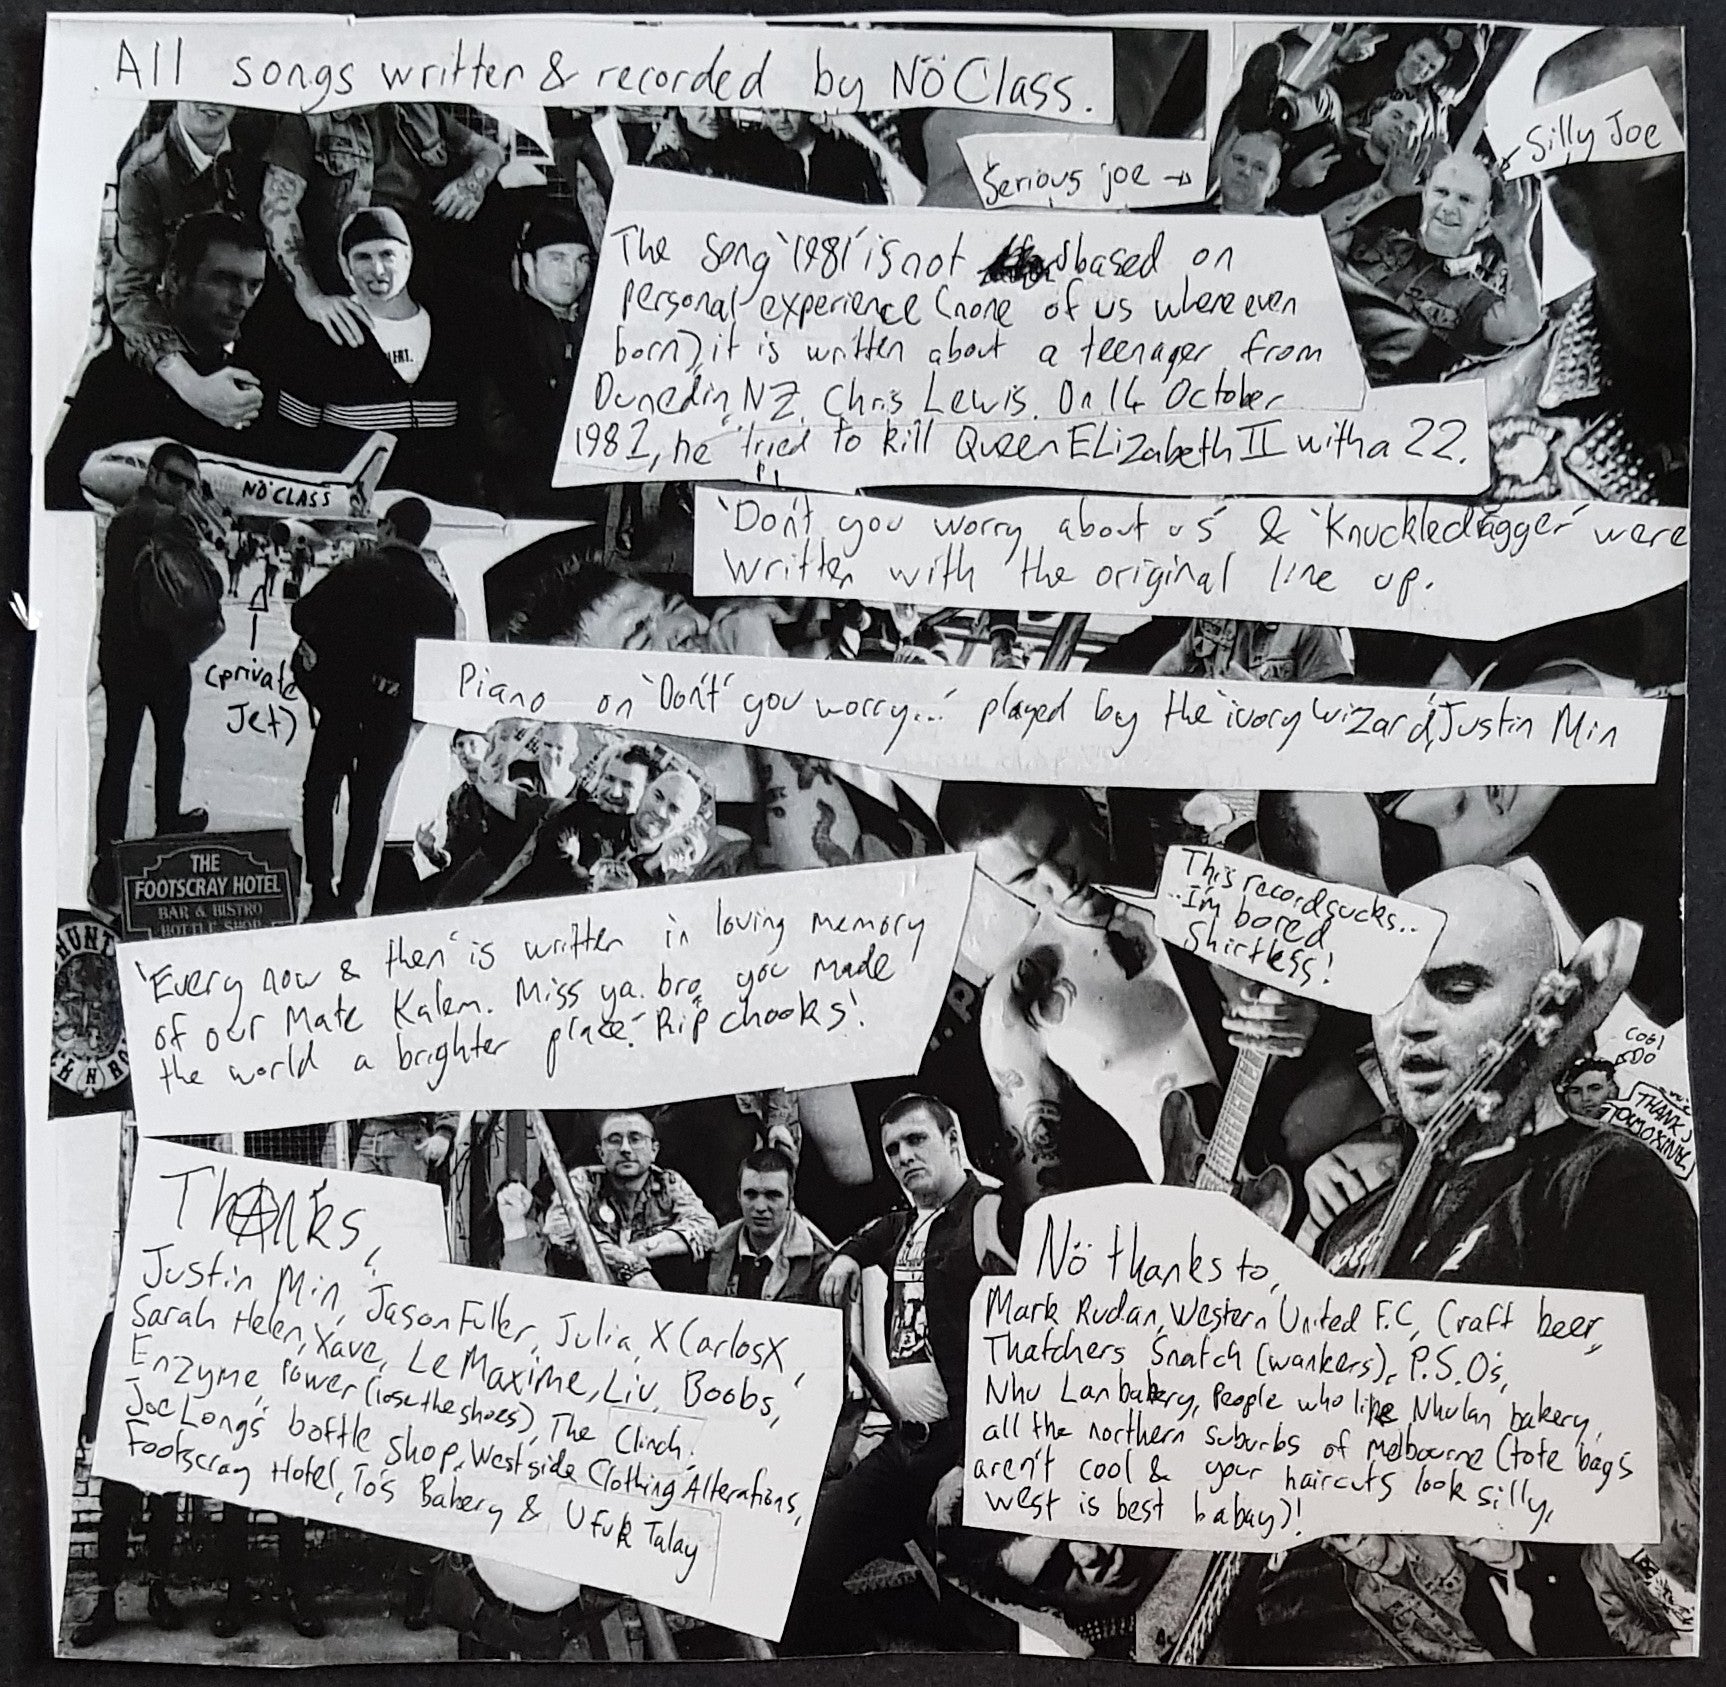 All songs written & recorded by NÖ CLASS.
Silly Joe
Serious joe →
The song '1981' is not based on
personal experience (none of us where even
born), it is written about a teenager from
Dunedin, NZ, Chris Lewis. On 14 October
1981, he tried to kill Queen ELizabeth II with a 22.
NÖ CLASS
(private
Jet)
'Don't you worry about us' & 'Knuckledragger' were
written with the original line up.
Piano on 'Don't you worry...' played by the 'ivory wizard', Justin Min
THE
FOOTSCRAY HOTEL
BAR & BISTRO
BOTTLE SHOP
This record sucks..
..I'm bored
Shirtless!
'Every now & then' is written in loving memory
of our Mate Kalem. Miss ya bro, you made
the world a brighter place. Rip chooks!
THANKS
Thanks,
Justin Min, Jason Fuller, Julia, X CarlosX,
Sarah Helen, Xave, Le Maxime, Liv, Boobs,
Enzyme, Power (lose the shoes), The Clinch,
Joe Long's bottle shop, West side Clothing Alterations,
Footscray Hotel, To's Bakery & Ufuk Talay
Nö thanks to,
Mark Rudan, Western United F.C, Craft beer,
Thatchers Snatch (wankers), P.S.O's,
Nhu Lan bakery, People who like Nhulan bakery,
all the northern suburbs of Melbourne (tote bags
aren't cool & your haircuts look silly,
west is best babay)!